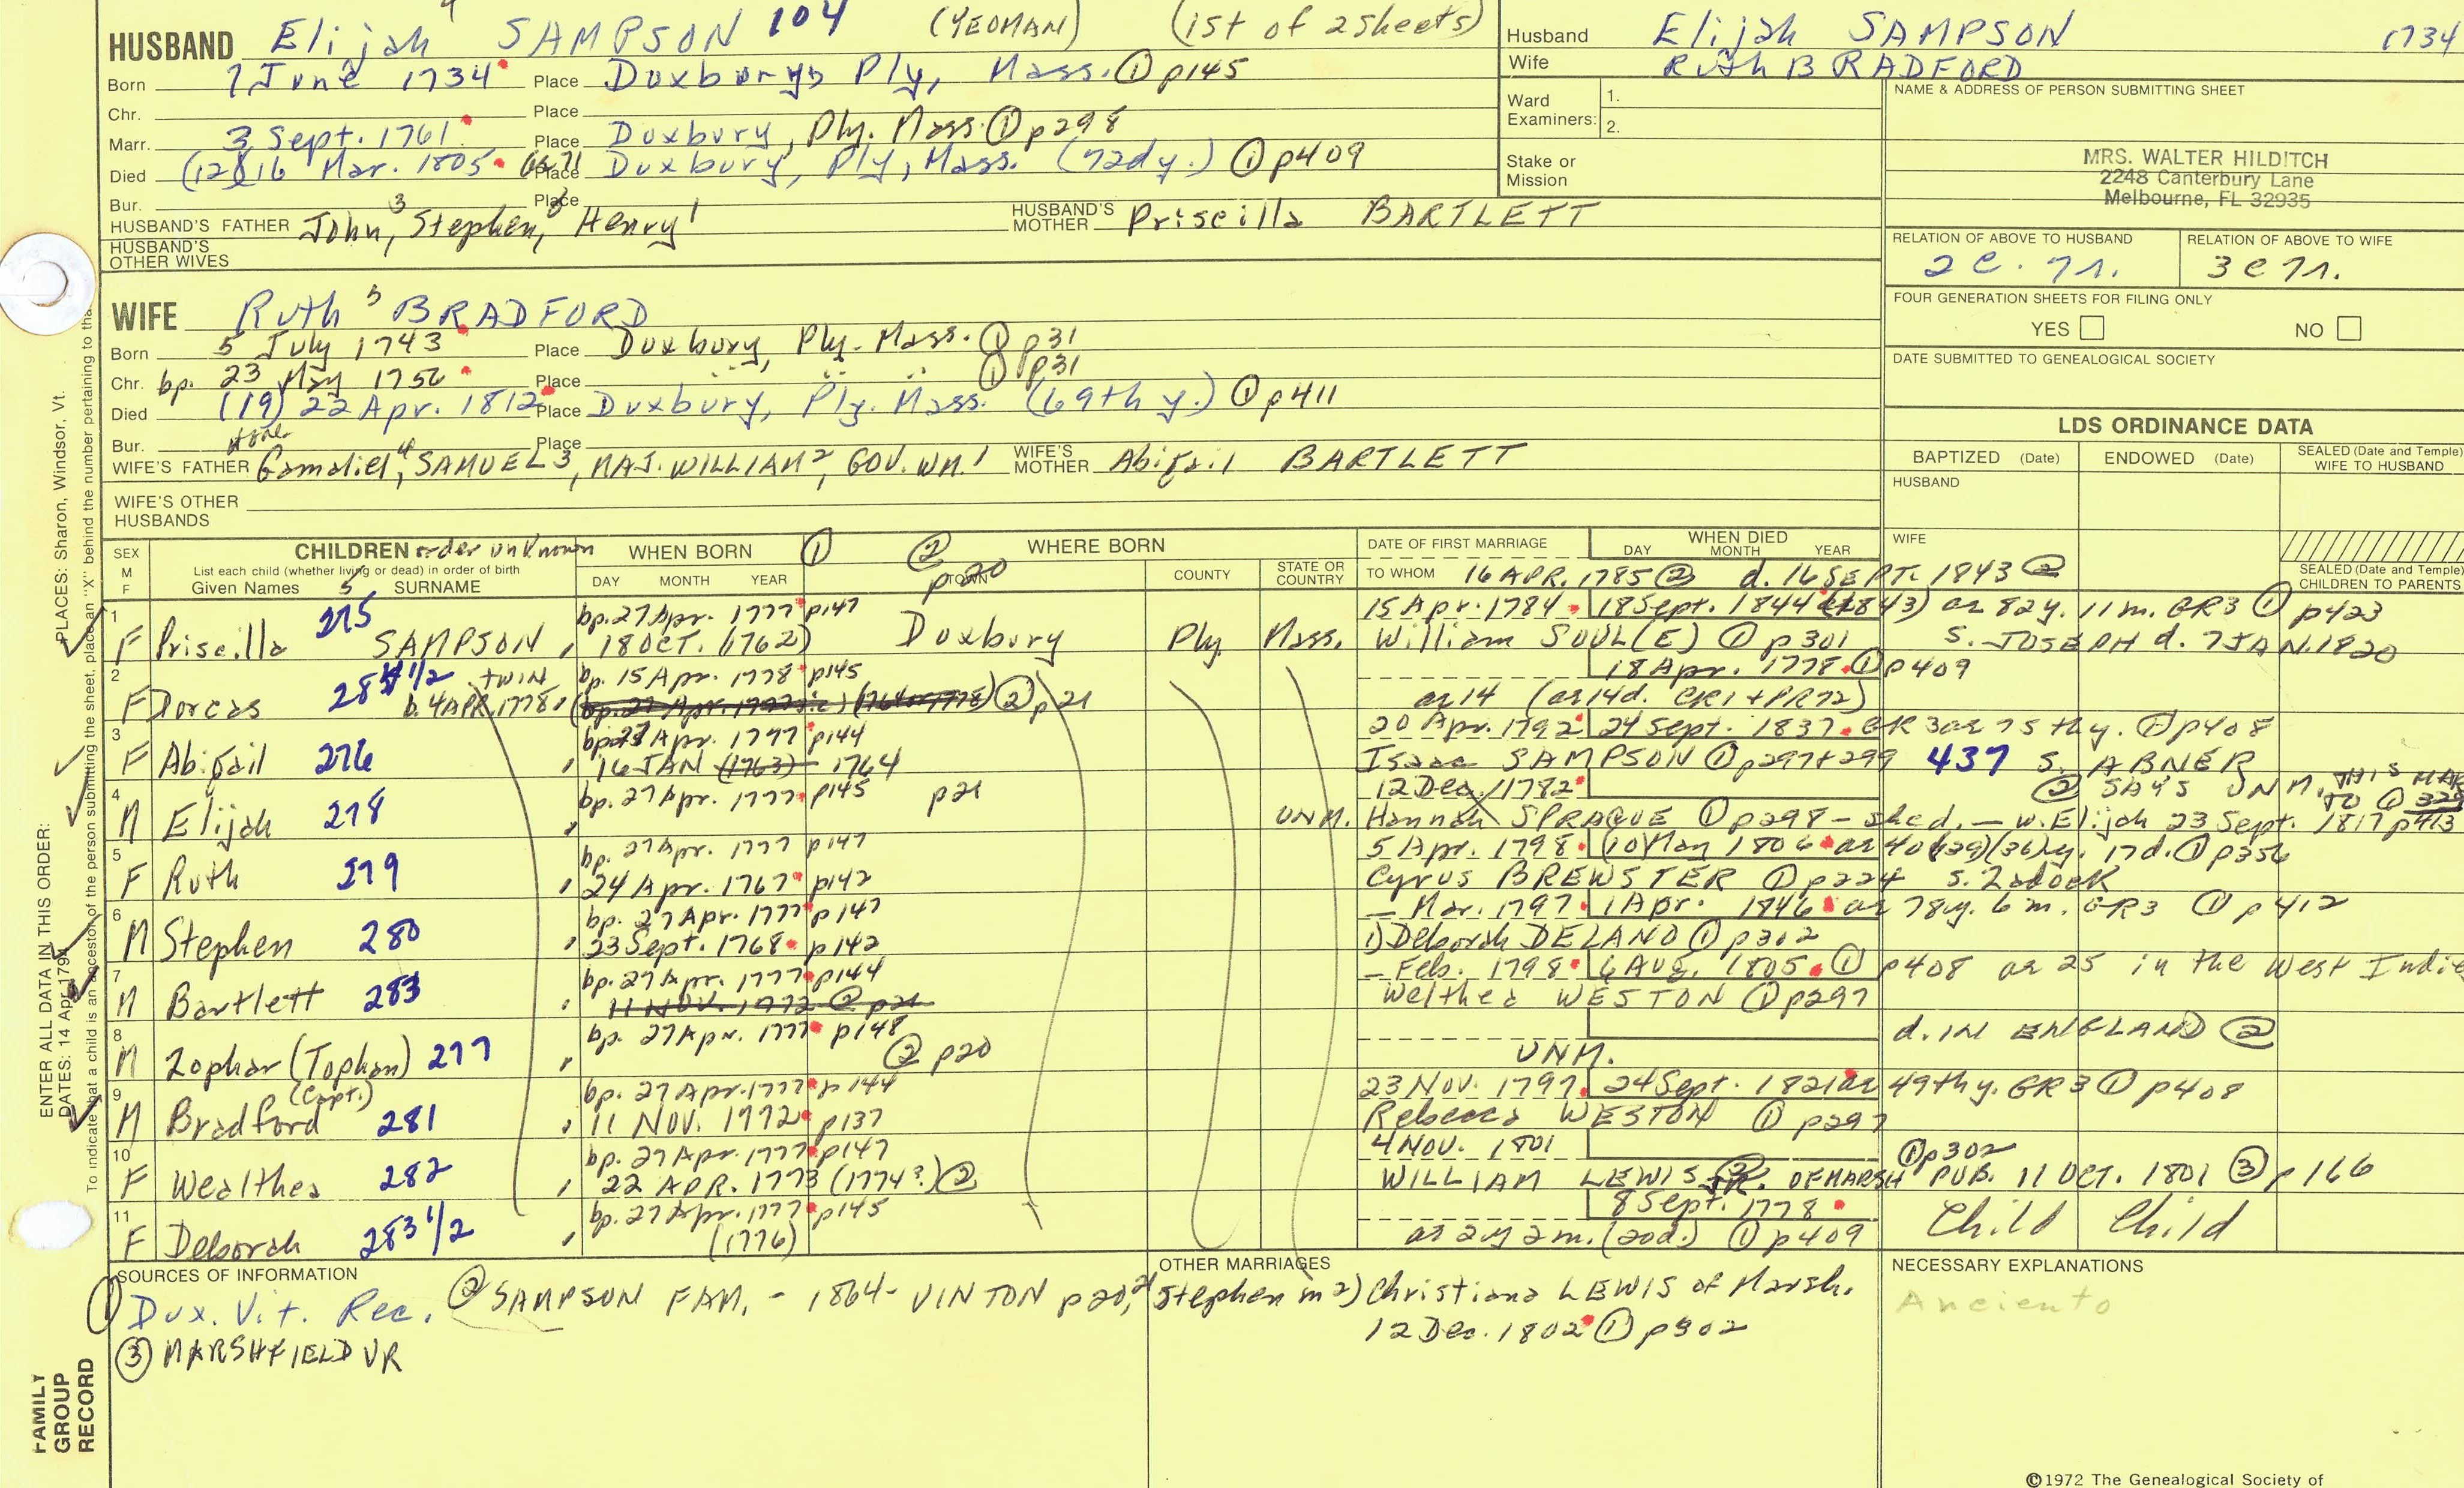 HUSBAND Elijah 4 SAMPSON 104 (YEOMAN) (1st of 2 sheets)
Born 7 June 1734 Place Duxbury, Ply, Mass. ① p145
Chr. Place
Marr. 3 Sept. 1761 Place Duxbury, Ply. Mass. ① p298
Died (12) 16 Mar. 1805 Place Duxbury, Ply, Mass. (72d y.) ① p409
Bur. Place
HUSBAND'S FATHER John, 3 Stephen, 2 Henry 1 HUSBAND'S MOTHER Priscilla BARTLETT
HUSBAND'S OTHER WIVES
Husband Elijah SAMPSON 1734
Wife Ruth BRADFORD
Ward Examiners: 1. 2.
Stake or Mission
NAME & ADDRESS OF PERSON SUBMITTING SHEET
MRS. WALTER HILDITCH
2248 Canterbury Lane
Melbourne, FL 32935
RELATION OF ABOVE TO HUSBAND RELATION OF ABOVE TO WIFE
2c. 7r. 3c7r.
FOUR GENERATION SHEETS FOR FILING ONLY
YES NO
DATE SUBMITTED TO GENEALOGICAL SOCIETY
WIFE Ruth 5 BRADFORD
Born 5 July 1743 Place Duxbury, Ply. Mass. ① p31
Chr. bp. 23 May 1756 Place " " " ① p31
Died (19) 22 Apr. 1812 Place Duxbury, Ply. Mass. (69th y.) ① p411
Bur. Place
WIFE'S FATHER Gamaliel 4, SAMUEL 3, MAJ. WILLIAM 2, GOV. WM. 1 WIFE'S MOTHER Abigail BARTLETT
WIFE'S OTHER HUSBANDS
LDS ORDINANCE DATA
BAPTIZED (Date) ENDOWED (Date) SEALED (Date and Temple) WIFE TO HUSBAND
HUSBAND
WIFE
SEALED (Date and Temple) CHILDREN TO PARENTS
SEX M F CHILDREN order unknown
List each child (whether living or dead) in order of birth
Given Names 5 SURNAME
WHEN BORN ① DAY MONTH YEAR
② p20 WHERE BORN TOWN COUNTY STATE OR COUNTRY
DATE OF FIRST MARRIAGE WHEN DIED DAY MONTH YEAR
TO WHOM 16 APR. 1785 ② d. 16 SEPT. 1843 ②
1 bp. 27 Apr. 1777 p147 15 Apr. 1784 18 Sept. 1844 (1843) ae 82y. 11m. GR3 ① p423
F Priscilla 275 SAMPSON, 18 OCT. (1762) Duxbury Ply Mass. William SOUL(E) ① p301 S. JOSEPH d. 7 JAN. 1820
2 284 1/2 twin bp. 15 Apr. 1778 p145 18 Apr. 1778 ① p409
F Dorcas b. 4 APR. 1778 ② p21 ae 14 (ae 14d. CR1 + PR72)
3 bp. 27 Apr. 1777 p144 20 Apr. 1792 24 Sept. 1837 GR 3 ae 75 thy. ① p408
F Abigail 276 16 JAN (1763) 1764 Isaac SAMPSON ① p297+299 437 S. ABNER
4 bp. 27 Apr. 1777 p145 p21 12 Dec. 1782 ② SAYS UNM.
M Elijah 278 UNM. Hannah SPRAGUE ① p298 - w. Elijah 23 Sept. 1817 p413
5 bp. 27 Apr. 1777 p147 5 Apr. 1798 (10) May 1806 ae 40 (39) (36)y. 17d. ① p356
F Ruth 279 24 Apr. 1767 p142 Cyrus BREWSTER ① p224 S. Zadock
6 bp. 27 Apr. 1777 p147 — Mar. 1797 1 Apr. 1846 ae 78y. 6m. GR3 ① p412
M Stephen 280 23 Sept. 1768 p142 1) Deborah DELANO ① p302
7 bp. 27 Apr. 1777 p144 — Feb. 1798 6 AUG. 1805 ① p408 ae 25 in the West Indie
M Bartlett 283 11 NOV. 1772 ② p21 Welthea WESTON ① p297
8 bp. 27 Apr. 1777 p148 d. IN ENGLAND ②
M Zophar (Tophan) 277 ② p20 UNM.
9 (Capt.) bp. 27 Apr. 1777 p144 23 Nov. 1797 24 Sept. 1821 ae 49thy. GR3 ① p408
M Bradford 281 11 NOV. 1772 p137 Rebecca WESTON ① p297
10 bp. 27 Apr. 1777 p147 4 NOV. 1801 ① p302
F Wealthea 282 22 APR. 1773 (1774?) ② WILLIAM LEWIS JR. OF MARSH PUB. 11 OCT. 1801 ③ p166
11 bp. 27 Apr. 1777 p145 8 Sept. 1778
F Deborah 283 1/2 (1776) ae 2y 2m. (20d.) ① p409 Child Child
SOURCES OF INFORMATION
① Dux. Vit. Rec. ② SAMPSON FAM. - 1864 - VINTON p20, 21
③ MARSHFIELD VR
OTHER MARRIAGES
Stephen m 2) Christiana LEWIS of Marsh.
12 Dec. 1802 ① p302
NECESSARY EXPLANATIONS
Anciento
ENTER ALL DATA IN THIS ORDER:
PLACES: Sharon, Windsor, Vt.
DATES: 14 Apr 1794
To indicate that a child is an ancestor of the person submitting the sheet, place an "X" behind the number pertaining to tha
FAMILY GROUP RECORD
©1972 The Genealogical Society of